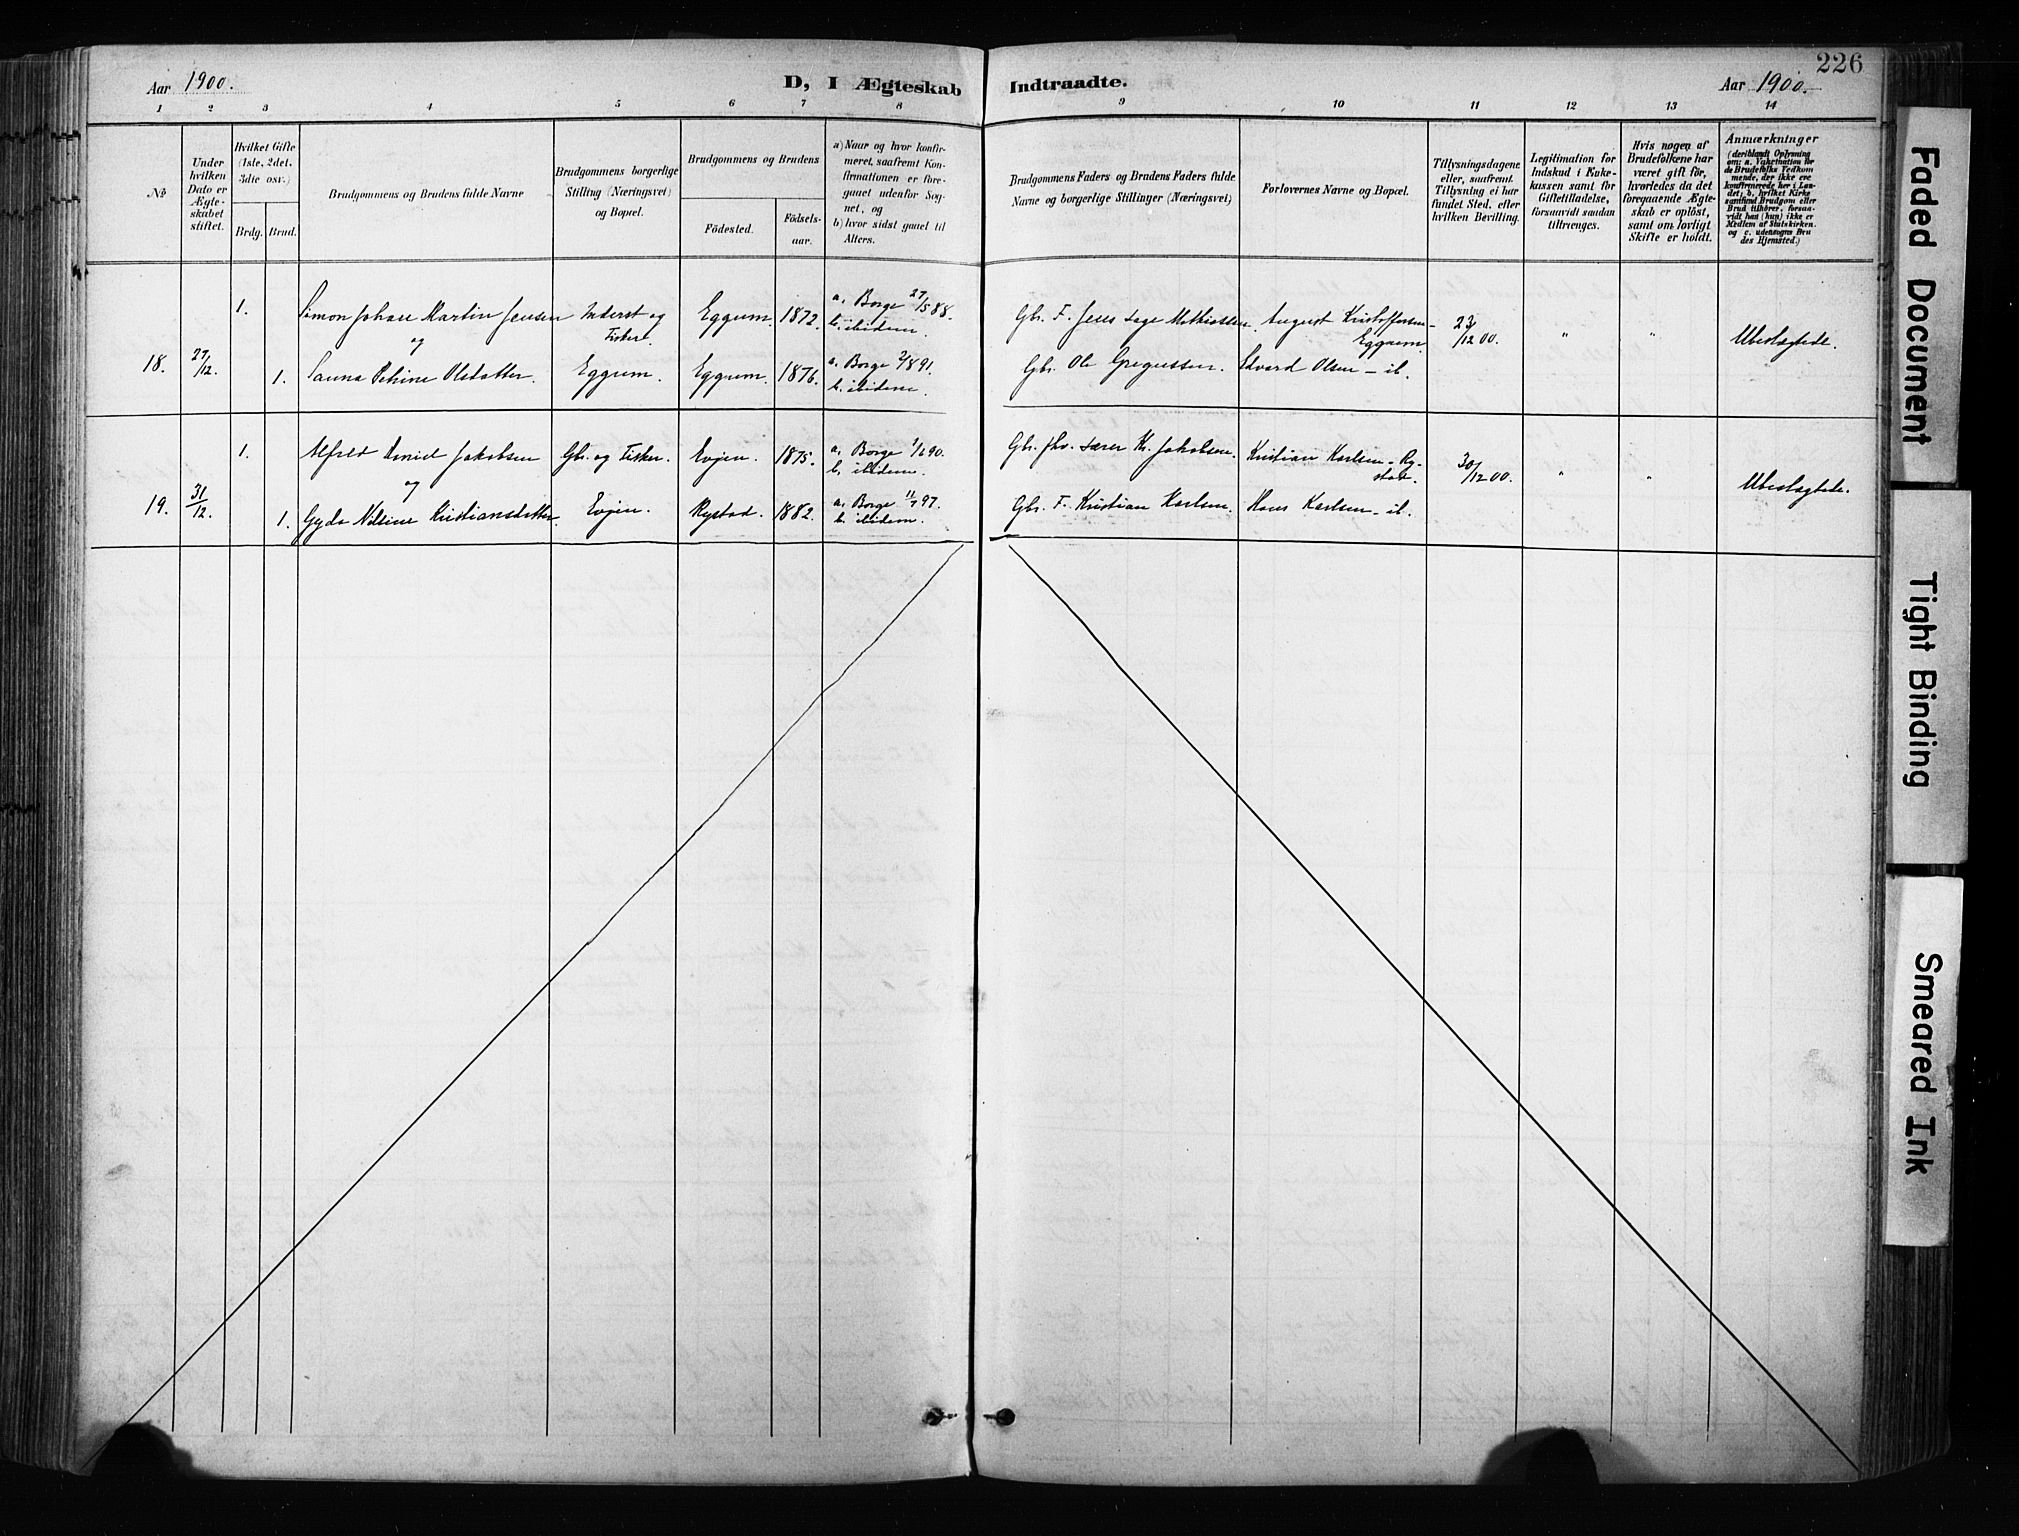 226
Aar 1900.
D, I Ægteskab Indtraadte.
Aar 1900.
1 2 3 4 5 6 7 8 9 10 11 12 13 14
No
Under hvilken Dato er Ægteskabet stiftet.
Hvilket Gifte (1ste, 2det, 3die osv.)
Brdg. Brud.
Brudgommens og Brudens fulde Navne
Brudgommens borgerlige Stilling (Næringsvei) og Bopæl.
Brudgommens og Brudens
Fødested. Fødselsaar.
a) Naar og hvor konfirmeret, saafremt Konfirmationen er foregaaet udenfor Sognet, og
b) hvor sidst gaaet til Alters.
Brudgommens Faders og Brudens Faders fulde Navne og borgerlige Stillinger (Næringsvei)
Forlovernes Navne og Bopæl.
Tillysningsdagene eller, saafremt Tillysning ei har fundet Sted, efter hvilken Bevilling.
Legitimation for Indskud i Enkekassen samt for Giftetilladelse, forsaavidt saadan tiltrænges.
Hvis nogen af Brudefolkene har været gift før, hvorledes da det foregaaende Ægteskab er opløst, samt om lovligt Skifte er holdt.
Anmærkninger
(deriblandt Oplysning om: a. Vakcination for de Brudefolks Vedkommende, der ikke ere konfirmerede her i Landet; b. hvilket Kirkesamfund Brudgom eller Brud tilhører, forsaavidt han (hun) ikke er Medlem af Statskirken. og c. udensogns Brudes Hjemsted.)
1. Simon Johan Martin Jensen Inderst og Fisker. Eggum. 1872. a. Borge 27/5 88. b. ibidem. Gbr. F. Jens Mathiassen. August Kristoffersen - Eggum 23/12 00. " " Ubeslægtede.
og
18. 27/12. 1. Sanna Petrine Olsdatter. Eggum. Eggum. 1876. a. Borge 2/8 91. b. ibidem. Gbr. Ole Gregussen. Edvard Olsen - ib.
1. Alfred Daniel Jakobsen Gbr. og Fisker. Evjen. 1875. a. Borge 1/6 90. b. ibidem. Gbr. Jakobsen. Kristian Karlsen - Rystad. 30/12 00. " " Ubeslægtede.
og
19. 31/12. 1. Gyda Kristiansdatter Evjen. Rystad. 1882. a. Borge 11/7 97. b. ibidem. Gbr. F. Kristian Karlsen. Hans Karlsen - ib.
Faded Document
Tight Binding
Smeared Ink